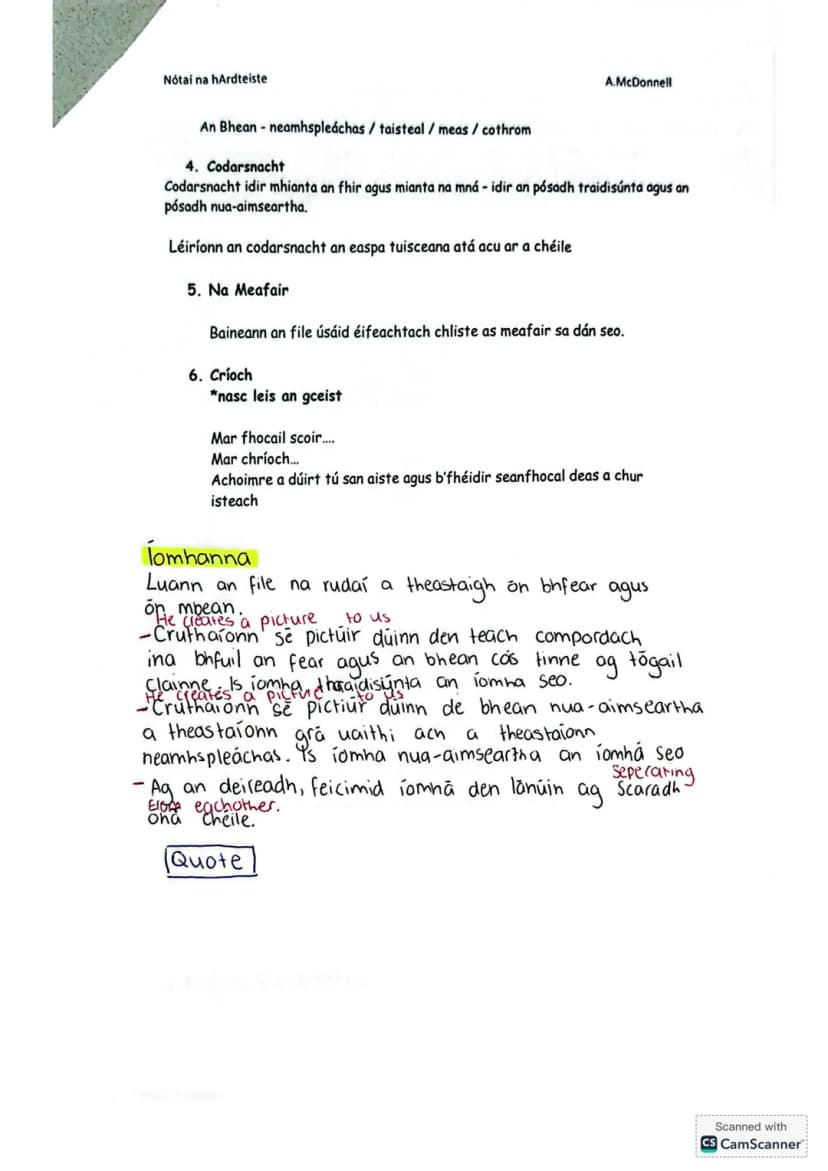 Nótaí na hArdteiste A.McDonnell
An Bhean - neamhspleáchas / taisteal / meas / cothrom
4. Codarsnacht
Codarsnacht idir mhianta an fhir agus mianta na mná - idir an pósadh traidisúnta agus an
pósadh nua-aimseartha.
Léiríonn an codarsnacht an easpa tuisceana atá acu ar a chéile
5. Na Meafair
Baineann an file úsáid éifeachtach chliste as meafair sa dán seo.
6. Críoch
*nasc leis an gceist
Mar fhocail scoir....
Mar chríoch...
Achoimre a dúirt tú san aiste agus b'fhéidir seanfhocal deas a chur
isteach
Íomhanna
Luann an file na rudaí a theastaigh ón bhfear agus
ón mbean.
He creates a picture to us
-Cruthaíonn sé pictúir dúinn den teach compordach
ina bhfuil an fear agus an bhean cós tinne ag tógáil
Clainne. Is íomha thraidisúnta an íomha seo.
He creates a picture to us
-Cruthaíonn sé pictiúr dúinn de bhean nua-aimseartha
a theastaíonn grá uaithi ach a theastaíonn
neamhspleáchas. Is íomha nua-aimseartha an íomhá seo
seperating
- Ag an deireadh, feicimid íomhá den lánúin ag Scaradh
eachother.
óna chéile.
Quote
Scanned with
CS CamScanner